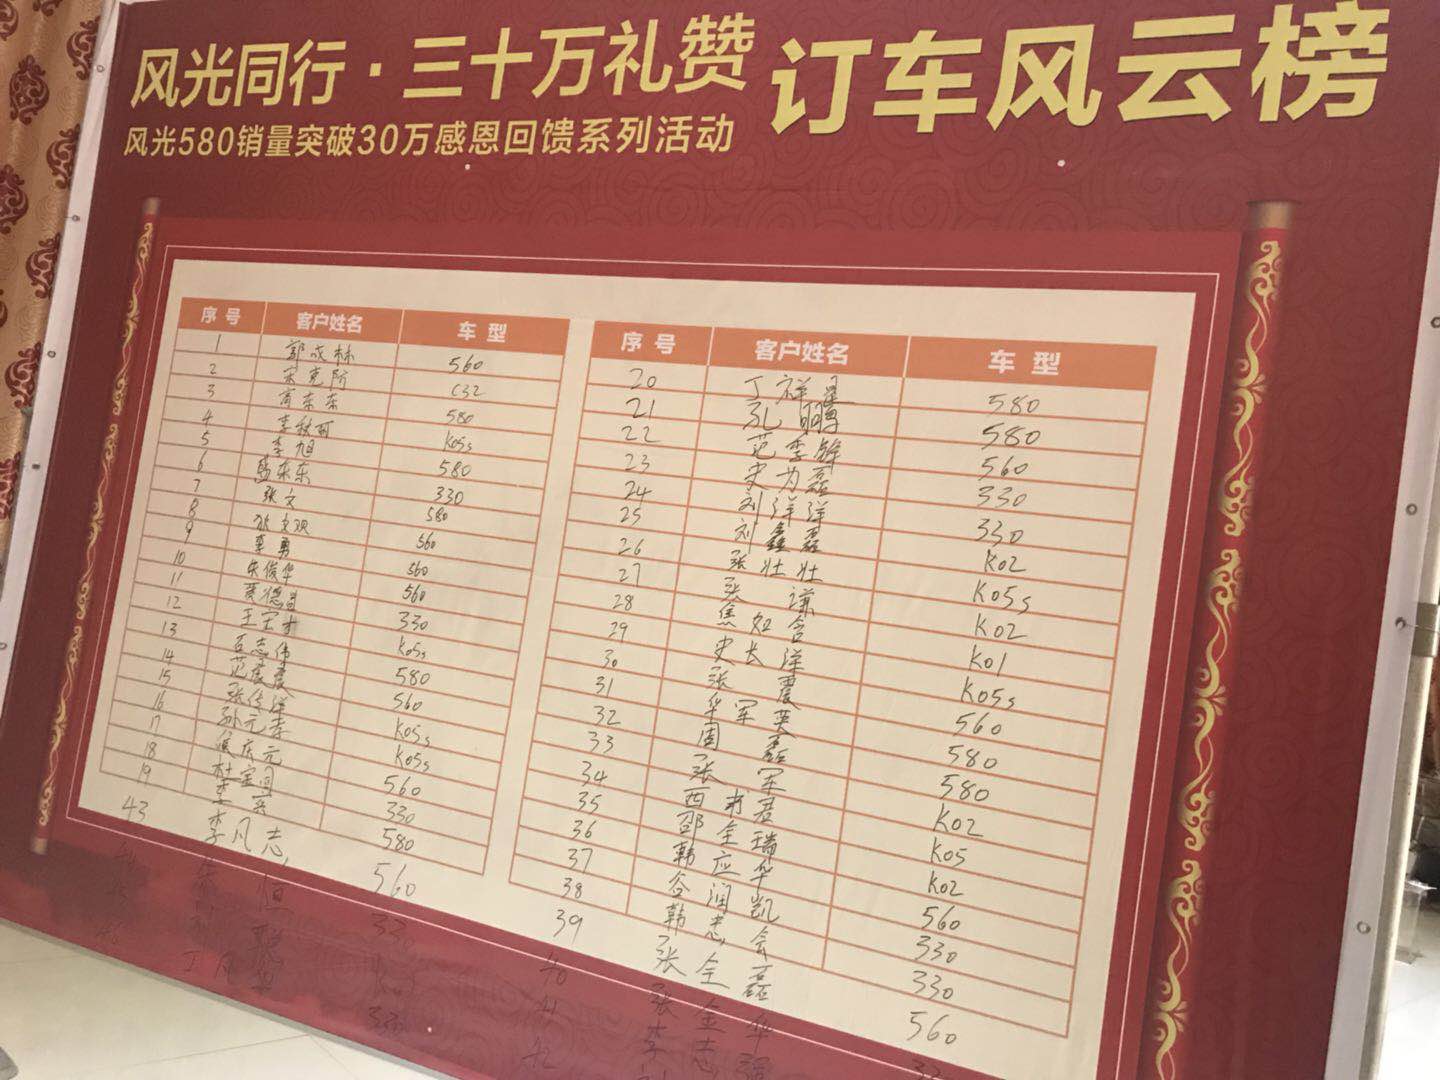 风光同行·三十万礼赞
订车风云榜
风光580销量突破30万感恩回馈系列活动
序号 客户姓名 车型
1 郭成林 560
2 宋克阶 C32
3 东东 580
4 李秋 K05s
5 李旭 580
6 东东 330
7 张文 580
8 560
9 李勇 560
10 朱俊华 560
11 黄德 330
12 王宝才 K05s
13 石志伟 580
14 范震震 560
15 张传洋 K05s
16 孙元李 K05s
17 侯庆元 560
18 杜宝 330
19 李兵 580
43 李凡志 560
恒 330
丁凡 330
序号 客户姓名 车型
20 丁祥星 580
21 孔 580
22 范李 560
23 史为磊 330
24 刘洋洋 330
25 刘鑫磊 K02
26 张壮壮 K05s
27 张谦 K02
28 焦如含 K01
29 史长洋 K05s
30 张震 560
31 华军英 580
32 周磊 580
33 张军 K02
34 西君 K05
35 邵全瑞 K02
36 韩应华 560
37 谷润凯 330
38 韩志会 330
39 张全磊 560
40 张全华
41 李志强
42